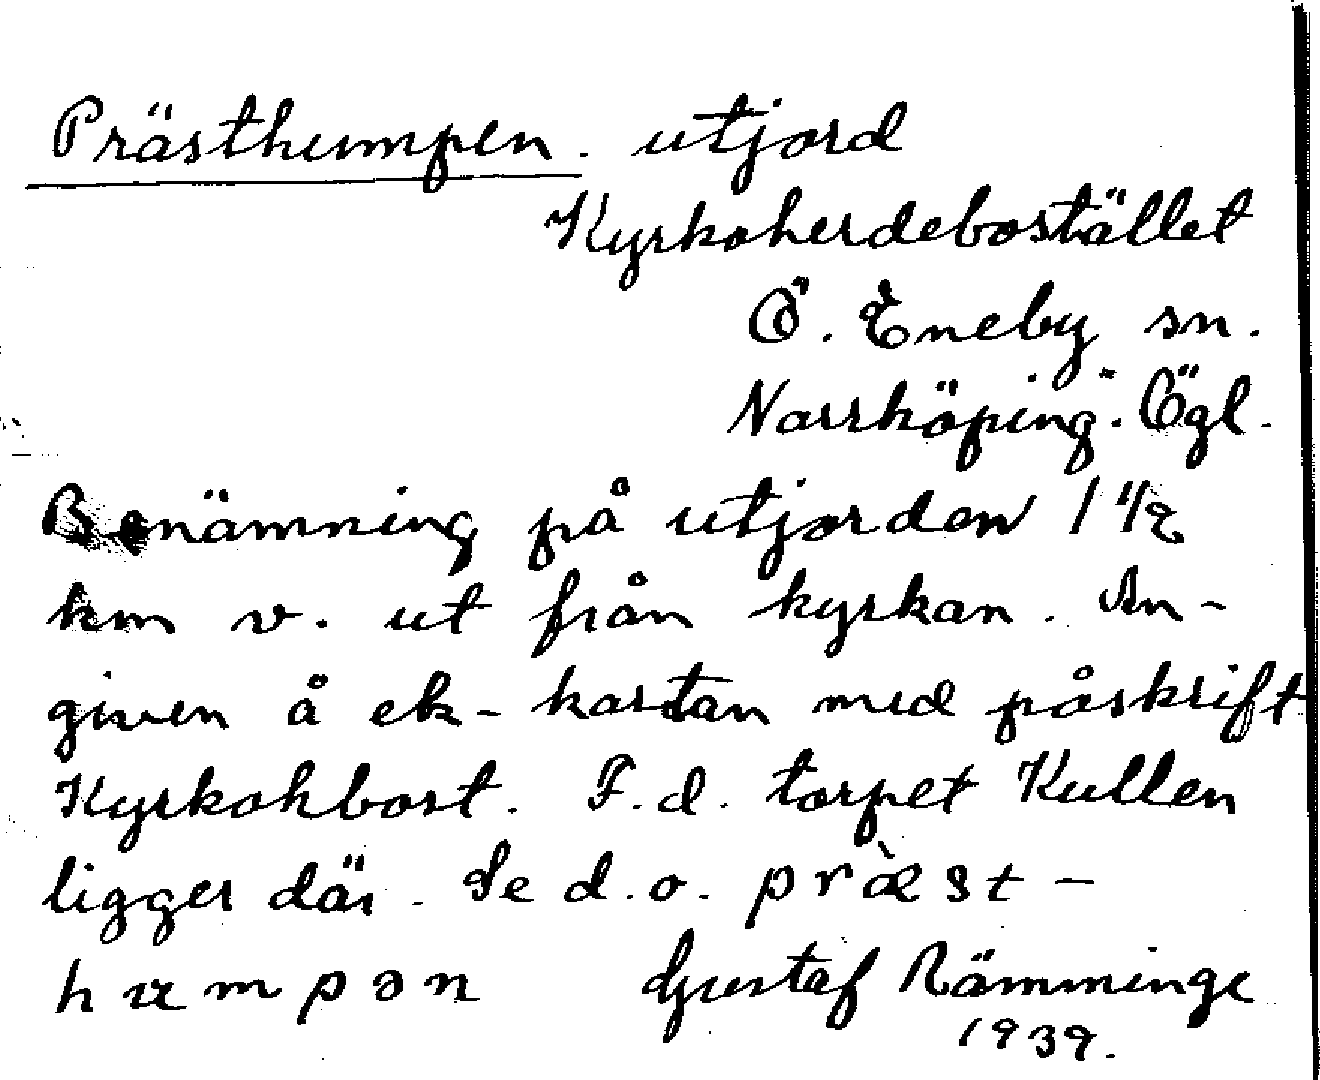 Prästhumpen. utjord
Kyrkoherdebostället
Ö. Eneby sn.
Norrköping. Ögl.
Benämning på utjorden 1 1/2
km v. ut från kyrkan. An-
given å ek-kartan med påskrift
Kyrkohbost. F.d. torpet Kullen
ligger där. Se d.o. prὰst-
humpən Gustaf Rämminge
1939.